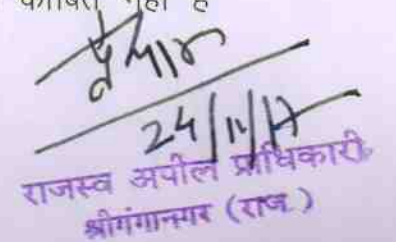 नहीं है
24/11/17
राजस्व अपील प्राधिकारी
श्रीगंगानगर (राज.)